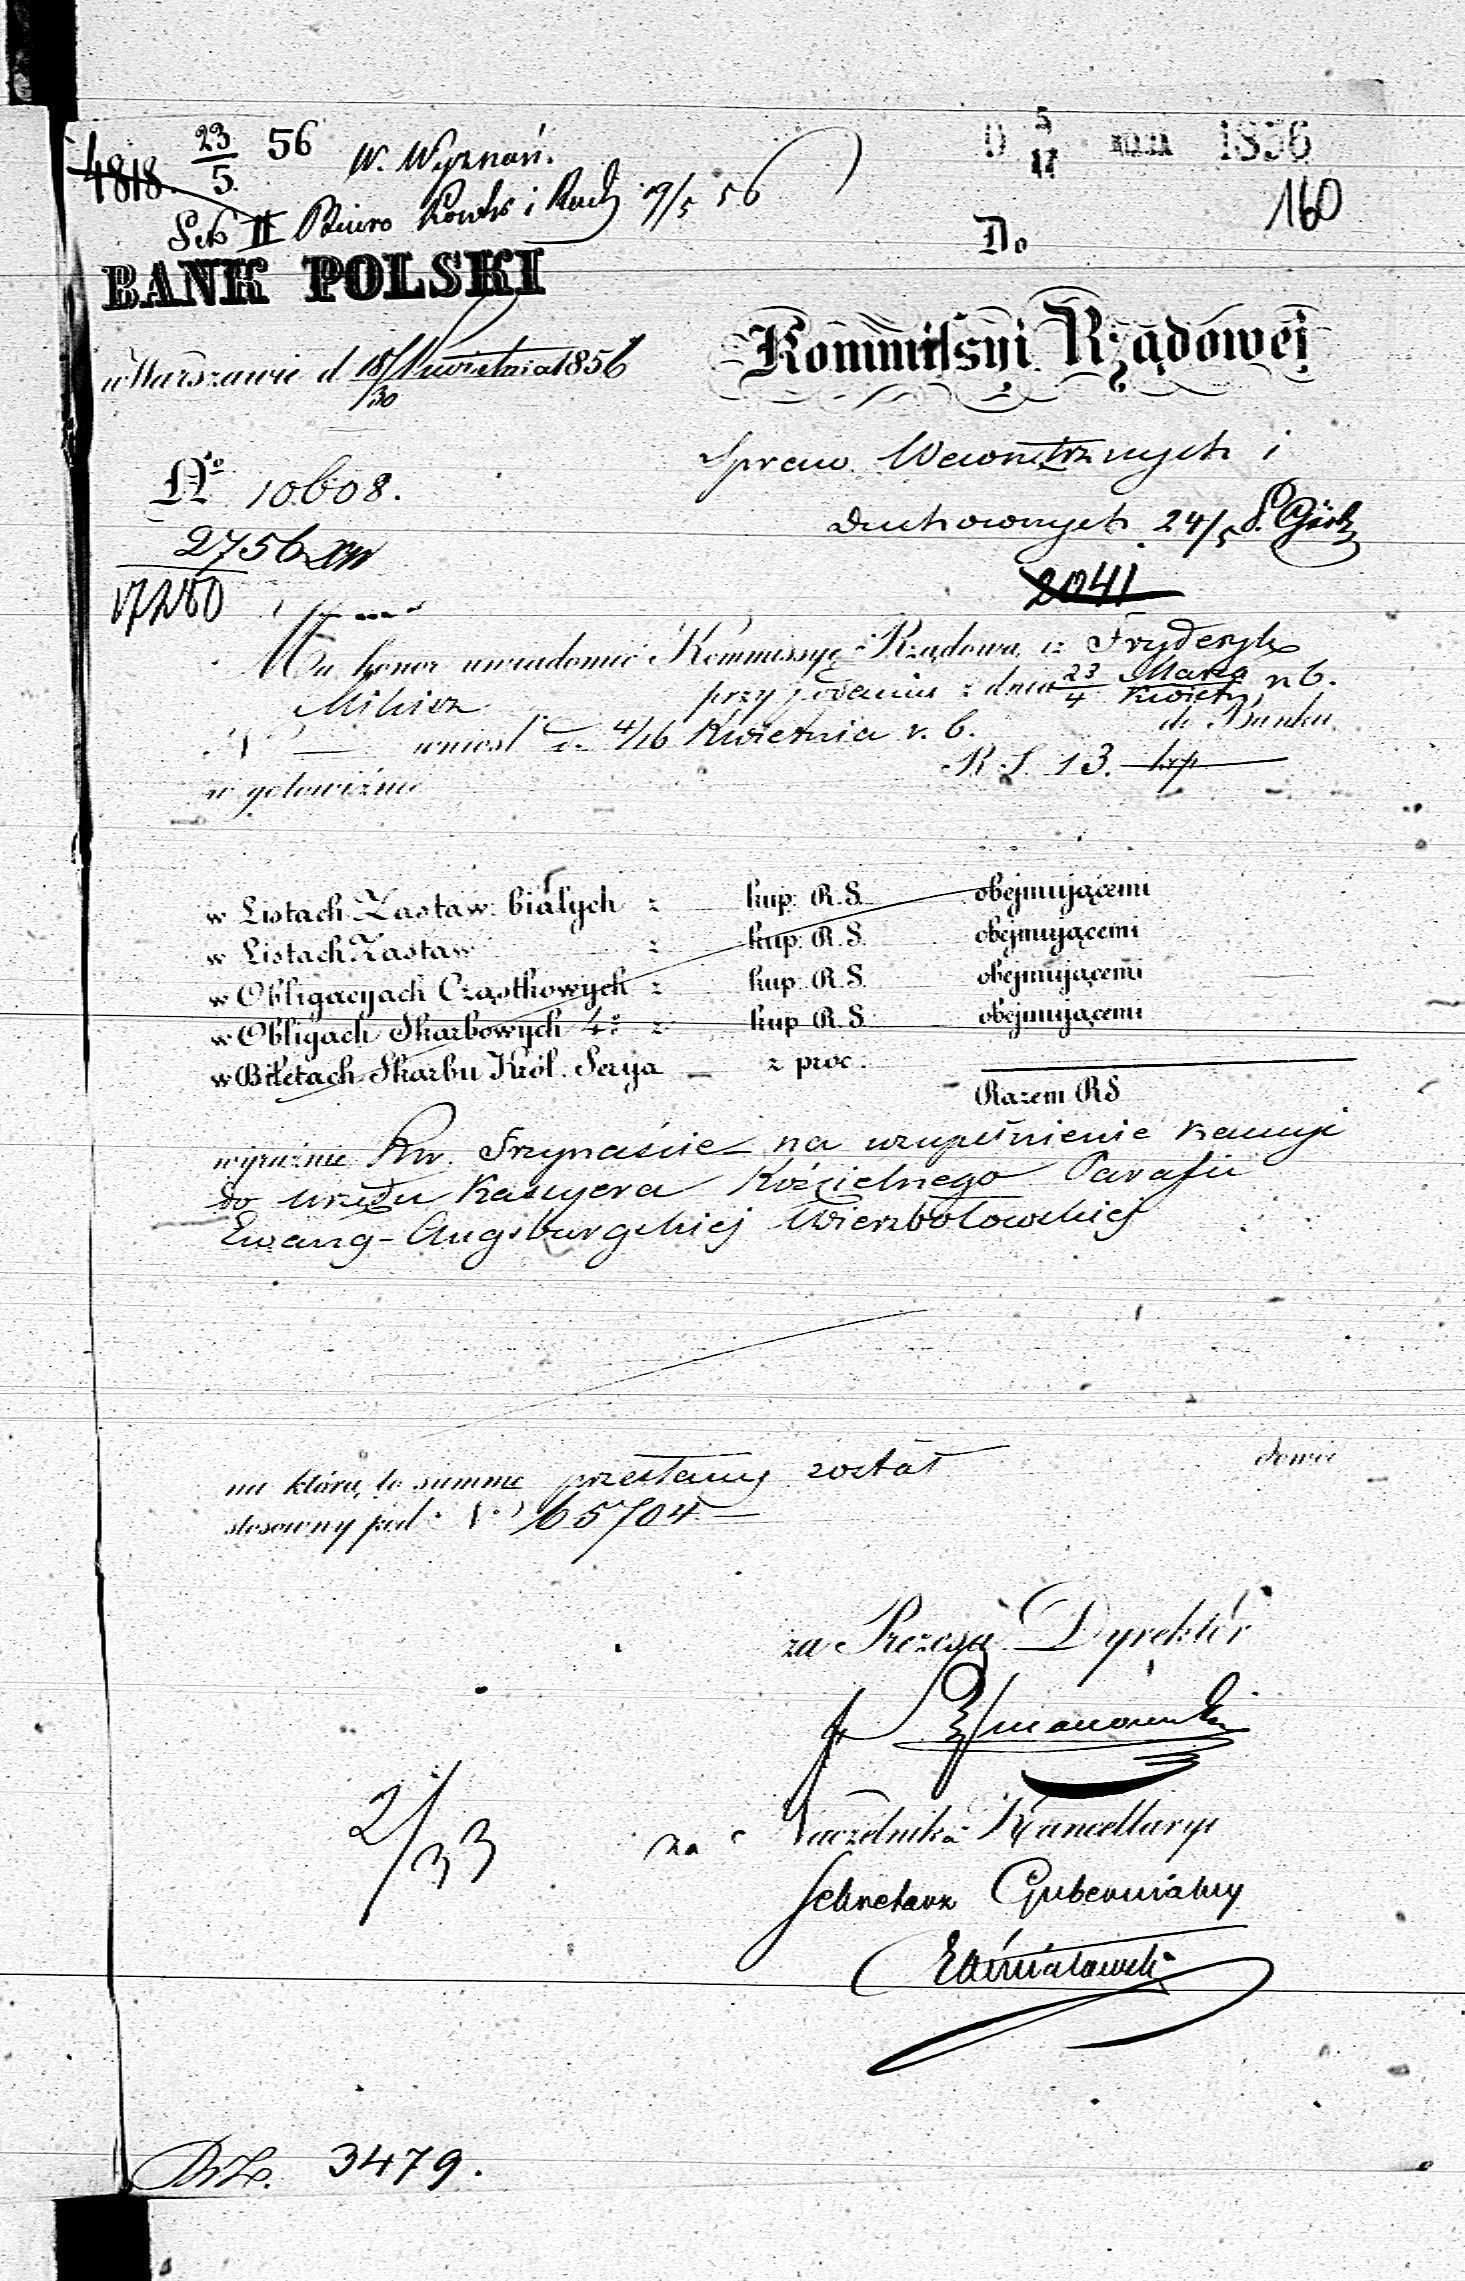 4818 23/5 56 W. Wyznań.
Sek II Biuro Kontr i Rach 19/5 56
D 5/17 MAJA 1856
160
BANK POLSKI
w Warszawie d 18/30 Kwietnia 1856
Do
Kommissyi Rządowej
Spraw Wewnętrznych i
Duchownych 24/5
Nº 10608.
2756
17280
2041
Ma honor uwiadomić Kommissyę Rządową, iż Fryderyk
przy podaniu z dnia 23/4 Marca/Kwiet. r. b.
wniósł d. 4/16 Kwietnia r. b. do Banku
w gotowiźnie R. S. 13. kop
w Listach Zastaw. białych z kup. R. S. obejmującemi
w Listach Zastaw z kup. R. S. obejmującemi
w Obligacyach Cząstkowych z kup. R. S. obejmującemi
w Obligach Skarbowych 4% z kup R. S. obejmującemi
w Biletach Skarbu Król. Serya z proc.
Razem RS
wyraźnie Rsr. Trzynaście na uzupełnienie kaucyi
do urzędu Kassyera Kościelnego Parafii
Ewang-Augsburgskiej Wierzbołowskiej
na którą to summę przesłany został dowód
stosowny pod Nº 65704
za Prezesa Dyrektór
za Naczelnika Kancellaryi
Sekretarz Gubernialny
2/33
3479.